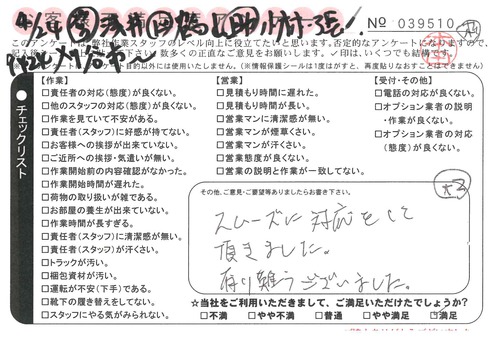 No 039510
このアンケートは弊社作業スタッフのレベル向上に役立てたいと思います。否定的なアンケートになりますので、
✓印は、いくつでも結構です。
チェックリスト
【作業】
□責任者の対応(態度)が良くない。
□他のスタッフの対応(態度)が良くない。
□作業を見ていて不安がある。
□責任者(スタッフ)に好感が持てない。
□お客様への挨拶が出来ていない。
□ご近所への挨拶・気遣いが無い。
□作業開始前の内容確認がなかった。
□作業開始時間が遅れた。
□荷物の取り扱いが雑である。
□お部屋の養生が出来ていない。
□作業時間が長すぎる。
□責任者(スタッフ)に清潔感が無い。
□責任者(スタッフ)が汗くさい。
□トラックが汚い。
□梱包資材が汚い。
□運転が不安(下手)である。
□靴下の履き替えをしてない。
□スタッフにやる気がみられない。
【営業】
□見積もり時間に遅れた。
□見積もり時間が長い。
□営業マンに清潔感が無い。
□営業マンが煙草くさい。
□営業マンが汗くさい。
□営業態度が良くない。
□営業の説明と作業が一致してない。
【受付・その他】
□電話の対応が良くない。
□オプション業者の説明
・作業が良くない。
□オプション業者の対応
(態度)が良くない。
その他、ご意見・ご要望等ありましたらお書き下さい。
スムーズに対応をして
頂きました。
有り難うございました。
☆当社をご利用いただきまして、ご満足いただけたでしょうか?
□不満 □やや不満 □普通 □やや満足 ☑満足